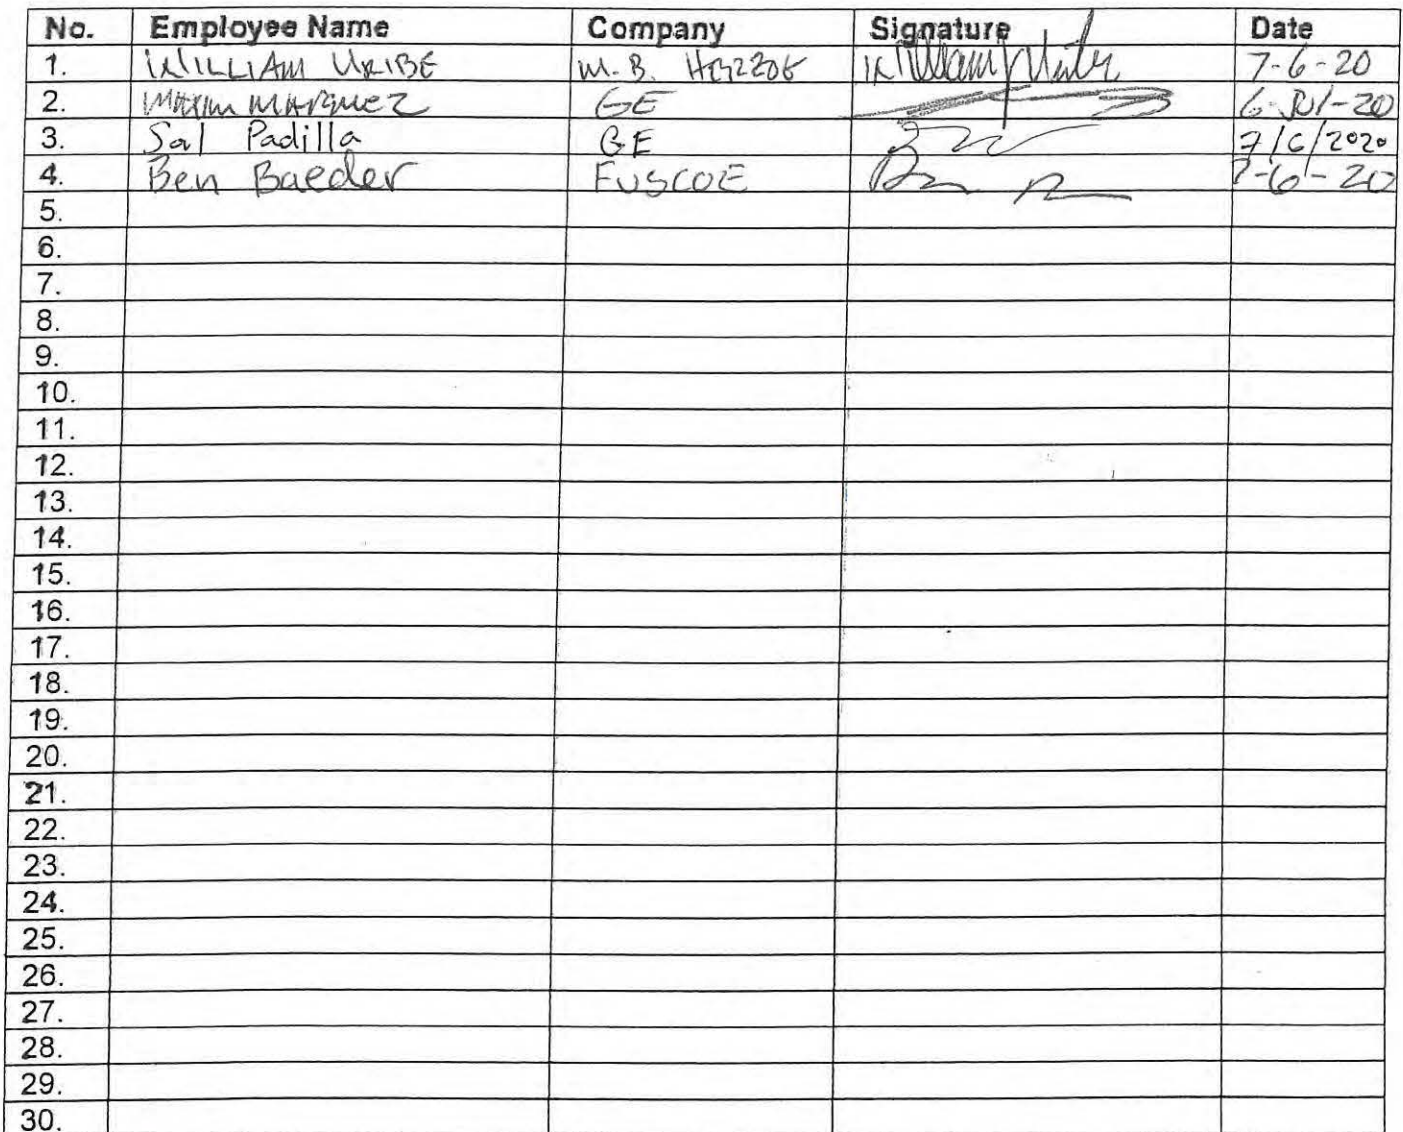 No. Employee Name Company Signature Date
1. WILLIAM URIBE M.B. HERZOG William Uribe 7-6-20
2. MARQUEZ GE 6-JUl-20
3. Sal Padilla GE 7/6/2020
4. Ben Baeder FUSCOE 7-6-20
5.
6.
7.
8.
9.
10.
11.
12.
13.
14.
15.
16.
17.
18.
19.
20.
21.
22.
23.
24.
25.
26.
27.
28.
29.
30.